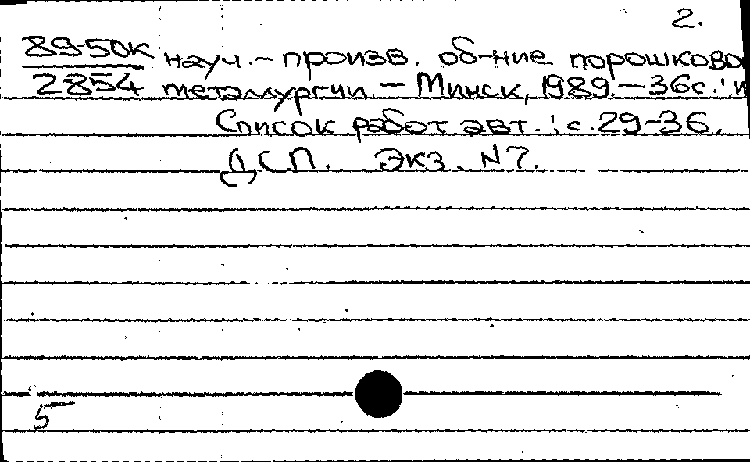 2.
89-50К науч.-произв. об-ние порошково
2854 металлургии - Минск, 1989.-36с.: и
Список работ авт.: с.29-36.
ДСП. Экз. N7.
5